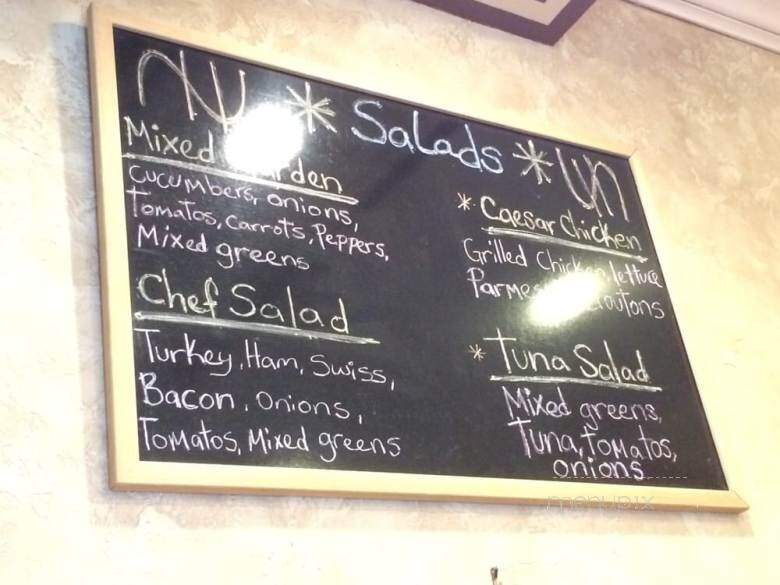 * Salads *
Mixed
cucumbers, onions,
Tomatos, carrots, Peppers,
Mixed greens
Chef Salad
Turkey, Ham, Swiss,
Bacon, onions,
Tomatos, Mixed greens
* Caesar Chicken
Grilled Chicken, lettuce
* Tuna Salad
Mixed greens,
Tuna, tomatos,
onions
menupix